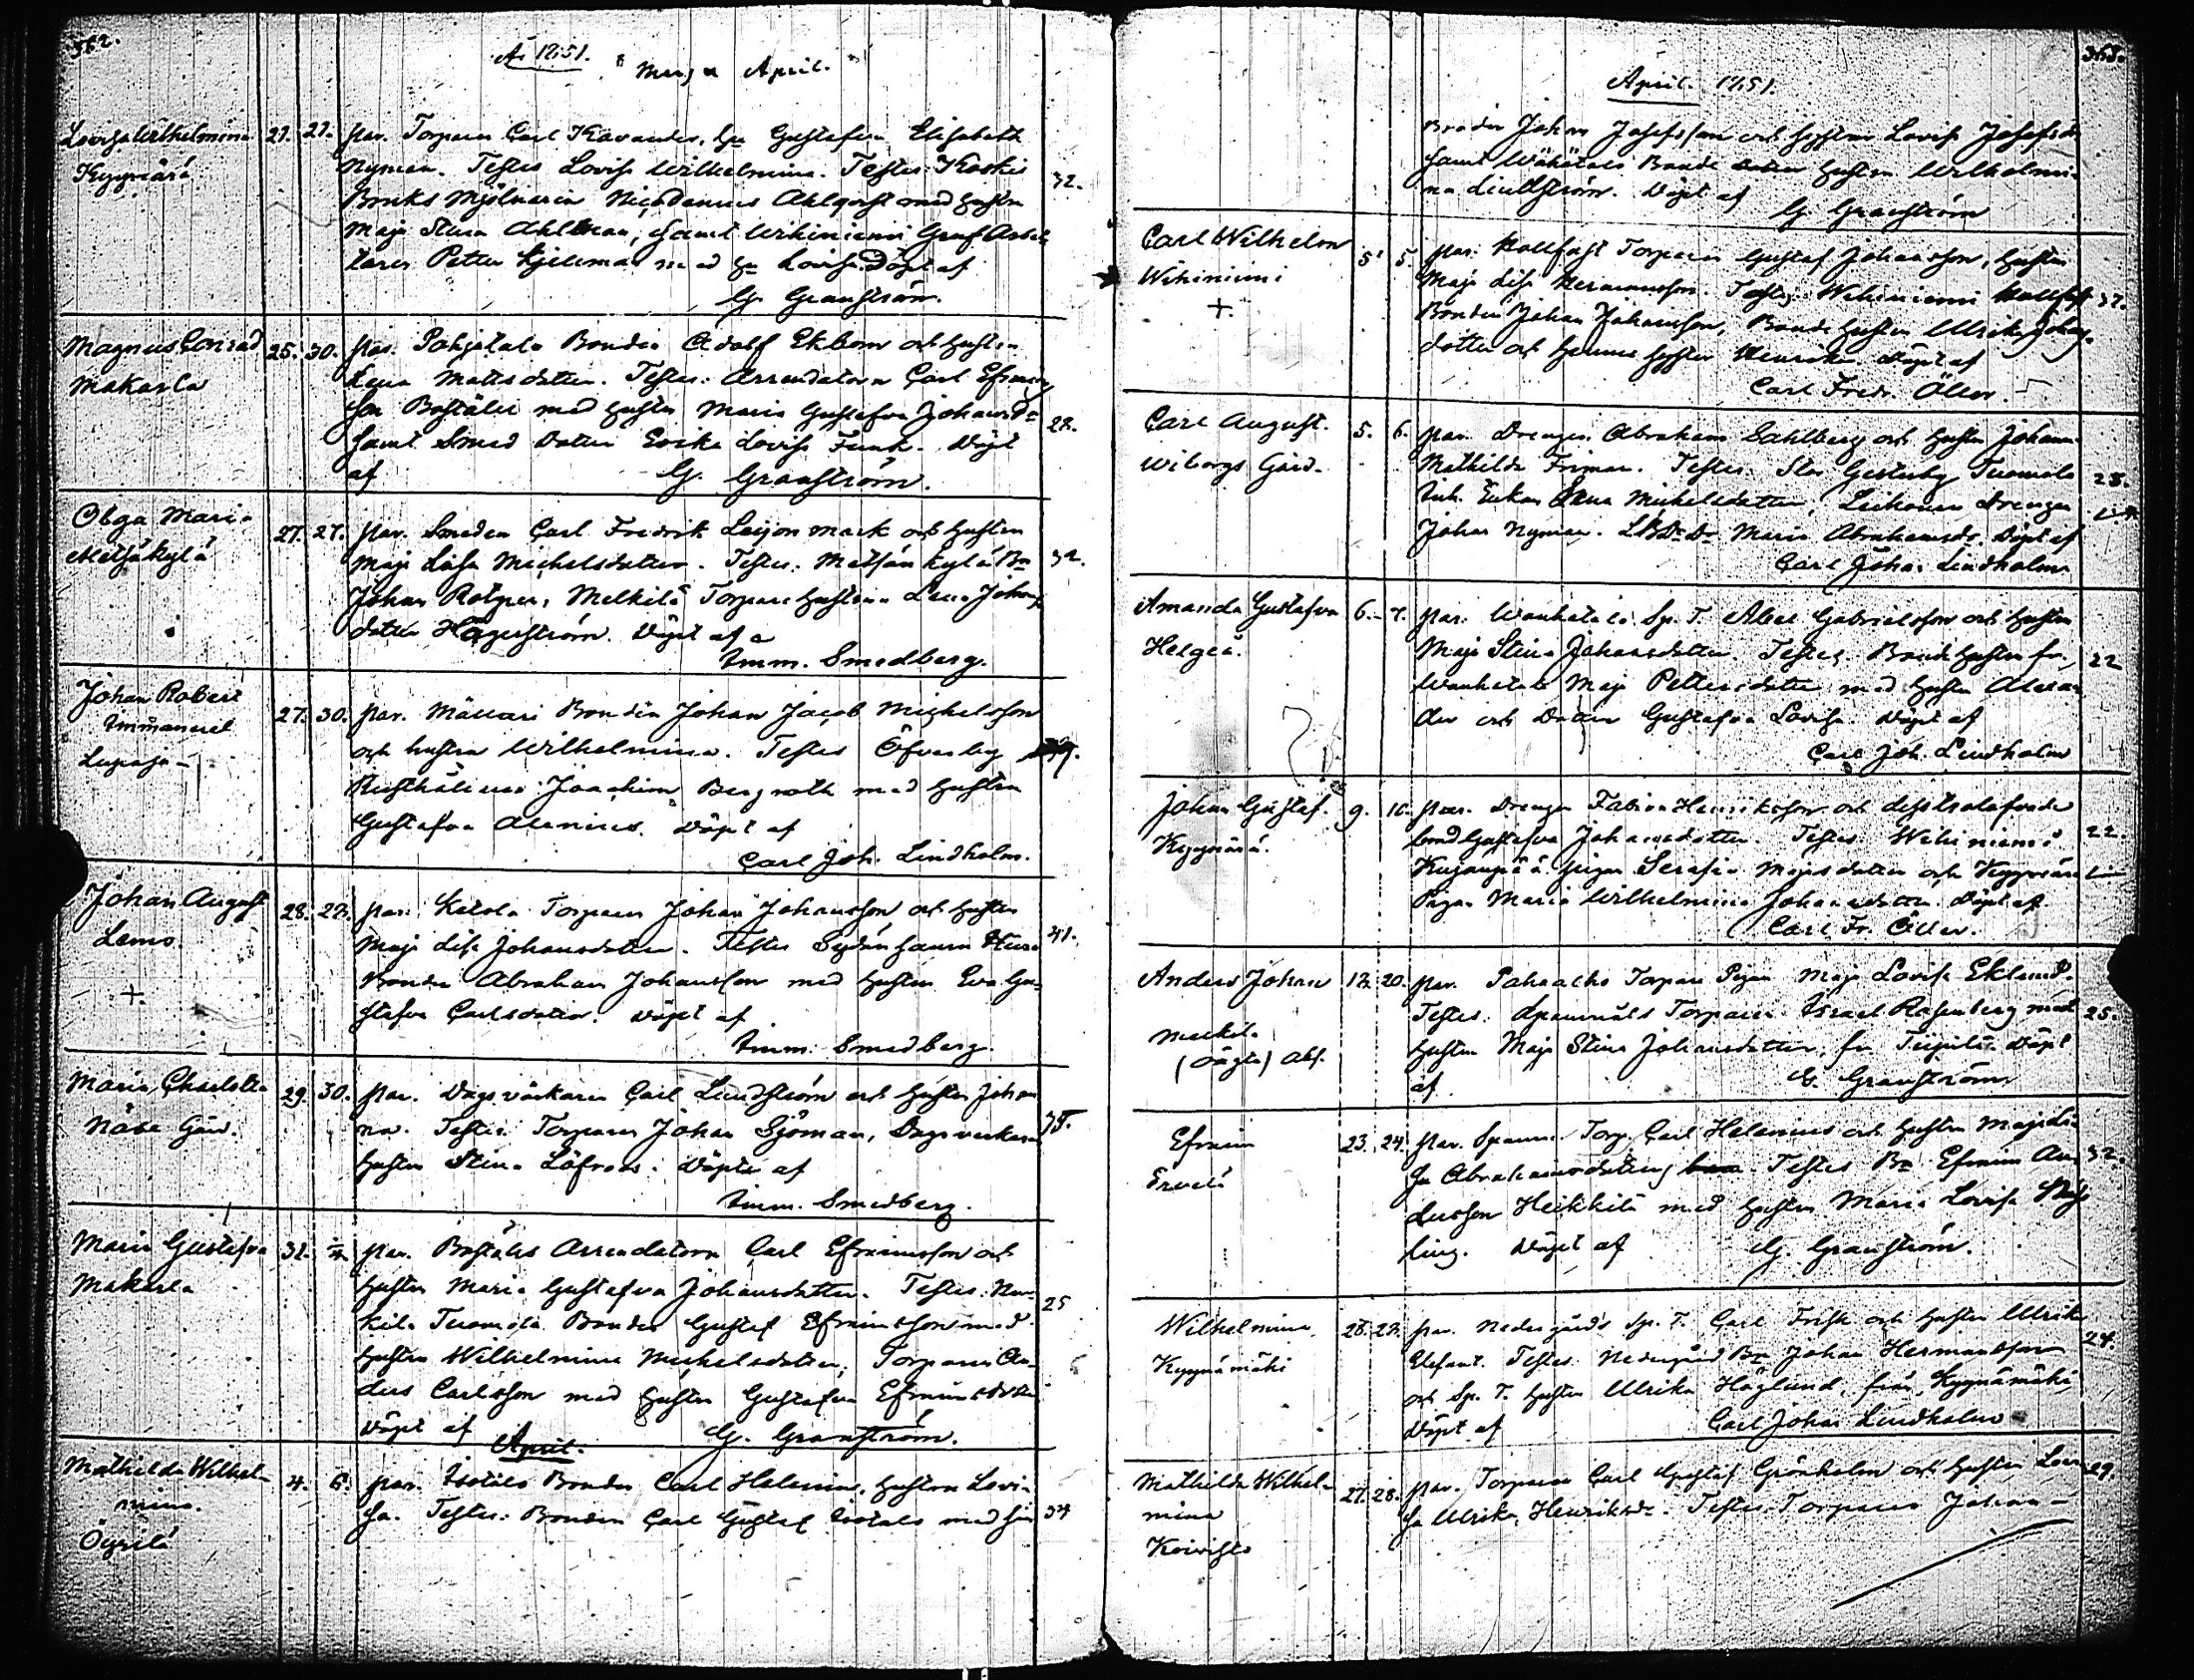 362.
År 1851. Mars & April.
Lovisa Wilhelmina 21. 27. par. Torparen Carl Kavander, Hu Gustafva Elisabeth
Kyynärä Nyman. Testes Lovisa Wilhelmina. Testes: Koskis
Bruks Mjölnaren Nicodemus Ahlqvist med hustru 32.
Maja Stina Ahlman, samt Wihiniemi Graf Arbe
taren Petter Kjellman med Hu Lovisa. Döpt af
G. Granström.
Magnus Conrad 25. 30. par. Pohjatalo Bonden Adolf Ekbom och hustru
Makarla Lena Mattsdotter. Testes: Arrendatorn Carl Efraims
son Boställe med hustru Maria Gustafva Johansdr 28.
samt Smed dotter Erika Lovisa Funk. Döpt
af G. Granström.
Olga Maria 27. 27. par. Smeden Carl Fredrik Leijonmark och hustru
Metsäkylä Maja Lisa Michelsdotter. Testes: Metsänkylä Bn 32.
Johan Rotper, Melkilä Torpare hustrun Lena Johans
dotter Hägerström. Döpt af
Imm. Smedberg.
Johan Robert 27. 30. par. Mällari Bonden Johan Jacob Michelsson
Immanuel och hustru Wilhelmina. Testes Öfverby
Lupaja Rusthållaren Joachim Bergroth med hustru
Gustafva Alenius. Döpt af
Carl Joh. Lindholm.
Johan August 28. 29. par. Ketola Torparen Johan Johansson och hustru
Lemo Maja Lisa Johansdotter. Testes Sydänsaura 41.
+ Bonden Abraham Johansson med hustru Eva Gu-
stafva Carlsdotter. Döpt af
Imm. Smedberg.
Maria, Charlotta 29. 30. par. Dagsverkaren Carl Lindström och hustru Johan
Näse Gård. na. Testes: Torparen Johan Sjöman, Dagsverkare 35.
hustru Stina Löfroos. Döpte af
Imm. Smedberg.
Maria Gustafva 31. par. Boställs Arrendatorn Carl Efraimsson och
Makarla hustru Maria Gustafva Johansdotter. Testes: 25
Tuomola Bonden Gustaf Efraimsson med
hustru Wilhelmina Michelsdotter, Torparen An-
ders Carlsson med hustru Gustafva Efraimsdotter
Döpt af G. Granström.
April.
Mathilda Wilhel- 4. 6. par. Isotalo Bonden Carl Helenius, hustrun Lovi-
mina. sa. Testes: Bonden Carl Gustaf Isotalo med sin 34
Öyrilä
363.
April. 1851.
Broder Johan Josefsson och syster Lovisa Josefsdr
samt Wähätalo Bonde hustru Wilhelmi-
na Lindström. Döpt af
G. Granström
Carl Wilhelm 5 5. par: Kollfast Torparen Gustaf Johansson, hustru
Wihiniemi Maja Lisa Hermansson. Testes: Wihiniemi 37.
+ Bonden Johan Johansson, Bonde hustru Ulrika Johans-
dotter och hennes syster Henrika. Döpt af
Carl Fredr. Öller.
Carl August. 5. 6. par. Drengen Abraham Sahlberg och hustru Johanna
Wiborgs Gård. Mathilda Friman. Testes: Stor Gesterby Tuomola 28.
Inh. Enkan Lena Michelsdotter, Drengen
Johan Nyman. Maria Abrahamsdr. Döpt af
Carl Johan Lindholm
Amanda Gustafva 6. 7. par. Wanhatalo Sp. T. Abel Gabrielsson och hustru
Helgeå. Maja Stina Johansdotter. Testes: Bonde hustru fr. 22
Wanhatalo Maja Pettersdotter med hustru Alexan
der och Dotter Gustafva Lovisa. Döpt af
Carl Joh. Lindholm
Johan Gustaf. 9. 10. par. Drengen Fabian Henriksson och
Kyynärä. Gustafva Johansdotter. Testes: Wihiniemi 22.
Kujanpää pigan Serafia dotter och Kyynärä
Pigan Maria Wilhelmina Johansdotter. Döpt af
Carl Fr. Öller.
Anders Johan 12. 20. par. Pahaoho Torpare Pigan Maja Lovisa Eklund.
Testes: Torparen Israel Rosenberg med 25.
(oägta) hustru Maja Stina Johansdotter, fr. Döpt
af G. Granström
Efraim 23. 24. par. Torp. Carl Helenius och hustru Maja Li-
Ervelä sa Abrahamsdotter, Testes Bn Efraim An 32.
dersson Heikkilä med hustru Maria Lovisa
ling. Döpt af G. Granström.
Wilhelmina 28. 29. par. Nedergårds Sp. T. Carl Frisk och hustru Ulrika
Kyynämäki Elefant. Testes: Nedergård Bn Johan Hermansson 24.
och Sp. T. hustru Ulrika Höglund, från Kyynämäki
Döpt af Carl Johan Lindholm
Mathilda Wilhel- 27. 28. par. Torparen Carl Gustaf Grönholm och hustru Lovi 29.
mina sa Ulrika Henriksdr. Testes Torparen Johan —
Koivisto